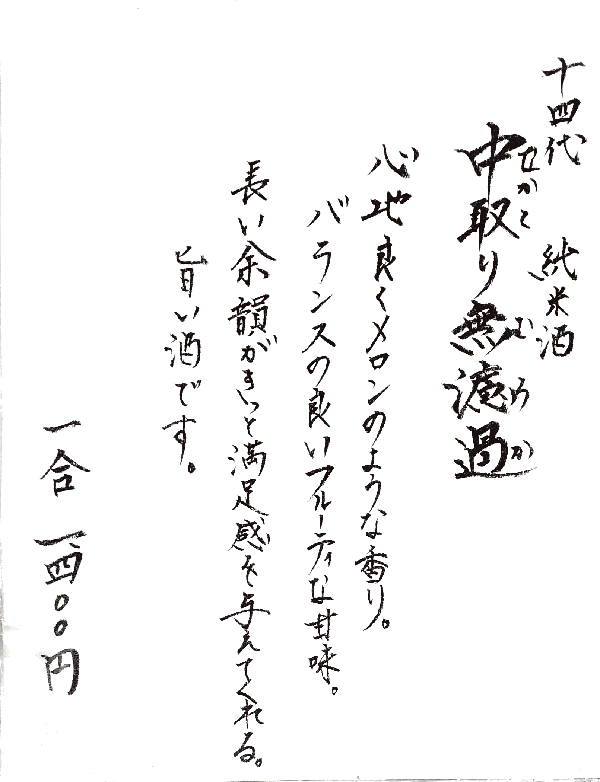 十四代 純米酒
中取り無濾過
なかと むろか
心地良くメロンのような香り。
バランスの良いフルーティな甘味。
長い余韻がきっと満足感を与えてくれる。
旨い酒です。
一合 一、四〇〇円